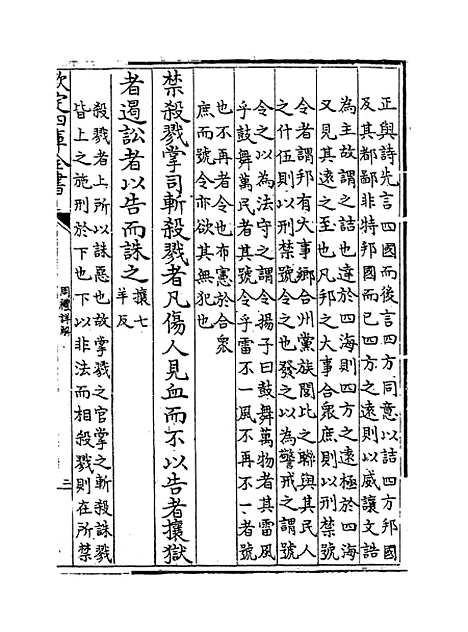 正與詩先言四國而後言四方同意以詰四方邦國
及其都鄙非特邦國而已四方之遠則以威讓文誥
為主故謂之詰也達於四海則四方之遠極於四海
又見其遠之至也凡邦之大事合衆庶則以刑禁號
令者謂邦有大事鄉合州黨族閭比之聯與其民人
之什伍則以刑禁號令之也發之以為警戒之謂號
令之以為法守之謂令揚子曰鼓舞萬物者其雷風
乎鼓舞萬民者其號令乎雷不一風不再不一者號
也不再者令也布憲於合衆
庶而號令亦欲其無犯也
禁殺戮掌司斬殺戮者凡傷人見血而不以告者攘獄
者遏訟者以告而誅之攘七羊反
殺戮者上所以誅惡也故掌戮之官掌之斬殺誅戮
皆上之施刑於下也下以非法而相殺戮則在所禁
欽定四庫全書
周禮詳解
二